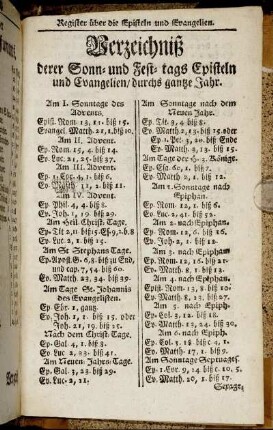 Register über die Episteln und Evangelien.
Verzeichniß
derer Sonn- und Fest- tags Episteln
und Evangelien / durchs gantze Jahr.
Am I. Sonntage des
Advents.
Epist. Rom. 13, 11. biß 15.
Evangel. Matth. 21, 1. biß 10.
Am II. Advent.
Ep. Rom. 15, 4. biß 14.
Ev. Luc. 21, 25. biß 37.
Am III. Advent.
Ep. 1. Cor. 4, 1. biß 6.
Ev. Matth. 11, 2. biß 11.
Am IV. Advent.
Ep. Phil. 4, 4. biß 8.
Ev. Joh. 1, 19. biß 29.
Am Heil. Christ-Tage.
Ep. Tit 2, 11. biß 15.
Ev. Luc. 2, 1. biß 15.
Am St Stephans Tage.
Ep. Apost. G. 6, 8. biß zu End,
und cap. 7, 54. biß 60.
Ev. Matth. 23, 34. biß 39.
Am Tage St. Johannis
des Evangelisten.
Ep. Ebr. 1. gantz.
Ev. Joh. 1, 1. biß 15. oder
Joh. 21, 19. biß 25.
Nach dem Christ-Tage.
Ep. Gal. 4, 1. biß 8.
Ev. Luc. 2, 33. biß 41.
Am Neuen-Jahrs-Tage.
Ep. Gal. 3, 23. biß 29.
Ev. Luc. 2, 21.
Am Sonntage nach dem
Neuen Jahr.
Ep. Tit. 3, 4. biß 8.
Ev. Matth. 2, 13. biß 15. oder
Ep. 1. Pet. 3, 20. biß Ende
Ev. Matth. 3, 13. biß 15.
Am Tage der H. 3. Könige.
Ep. Esa. 60, 1. biß 7.
Ev. Matth. 2, 1. biß 16.
Am 1. Sonntage nach
Epiphan.
Ep. Rom. 12, 1. biß 6.
Ev. Luc. 2, 41. biß 52.
Am 2. nach Epiphan.
Ep. Rom. 12, 6. biß 15.
Ev. Joh. 2, 1. biß 12.
Am 3. nach Epiphan
Ep. Rom. 12, 16. biß 21.
Ev. Matth. 8, 1. biß 13.
Am 4. nach Epiphan.
Epist. Rom. 13, 8. biß 10.
Ev. Matth. 8, 23. biß 27.
Am 5. nach Epiph.
Ep. Col. 3, 12. biß 18.
Ev. Matth. 13, 24. biß 30.
Am 6. nach Epiph.
Ep. Col. 3, 18. biß c. 4, 1.
Ev. Matth. 17, 1. biß 9.
Am Sonntage Septuages.
Ep. 1. Cor. 9, 24. biß c. 10, 5.
Ev. Matth. 20, 1. biß 17.